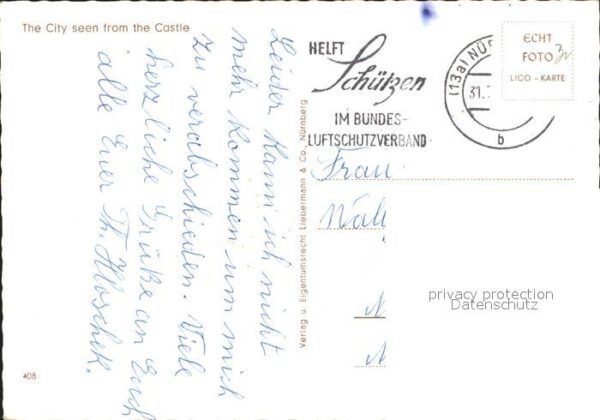 The City seen from the Castle
Leider kann ich nicht
mehr kommen um mich
zu verabschieden. Viele
herzliche Grüße an Euch
alle Euer Th. Hloschek.
408
Verlag u. Eigentumsrecht Liebermann & Co., Nürnberg
HELFT
Schützen
IM BUNDES-
LUFTSCHUTZVERBAND
(13a) NÜR
31.
b
ECHT
FOTO
LICO - KARTE
Frau
privacy protection
Datenschutz